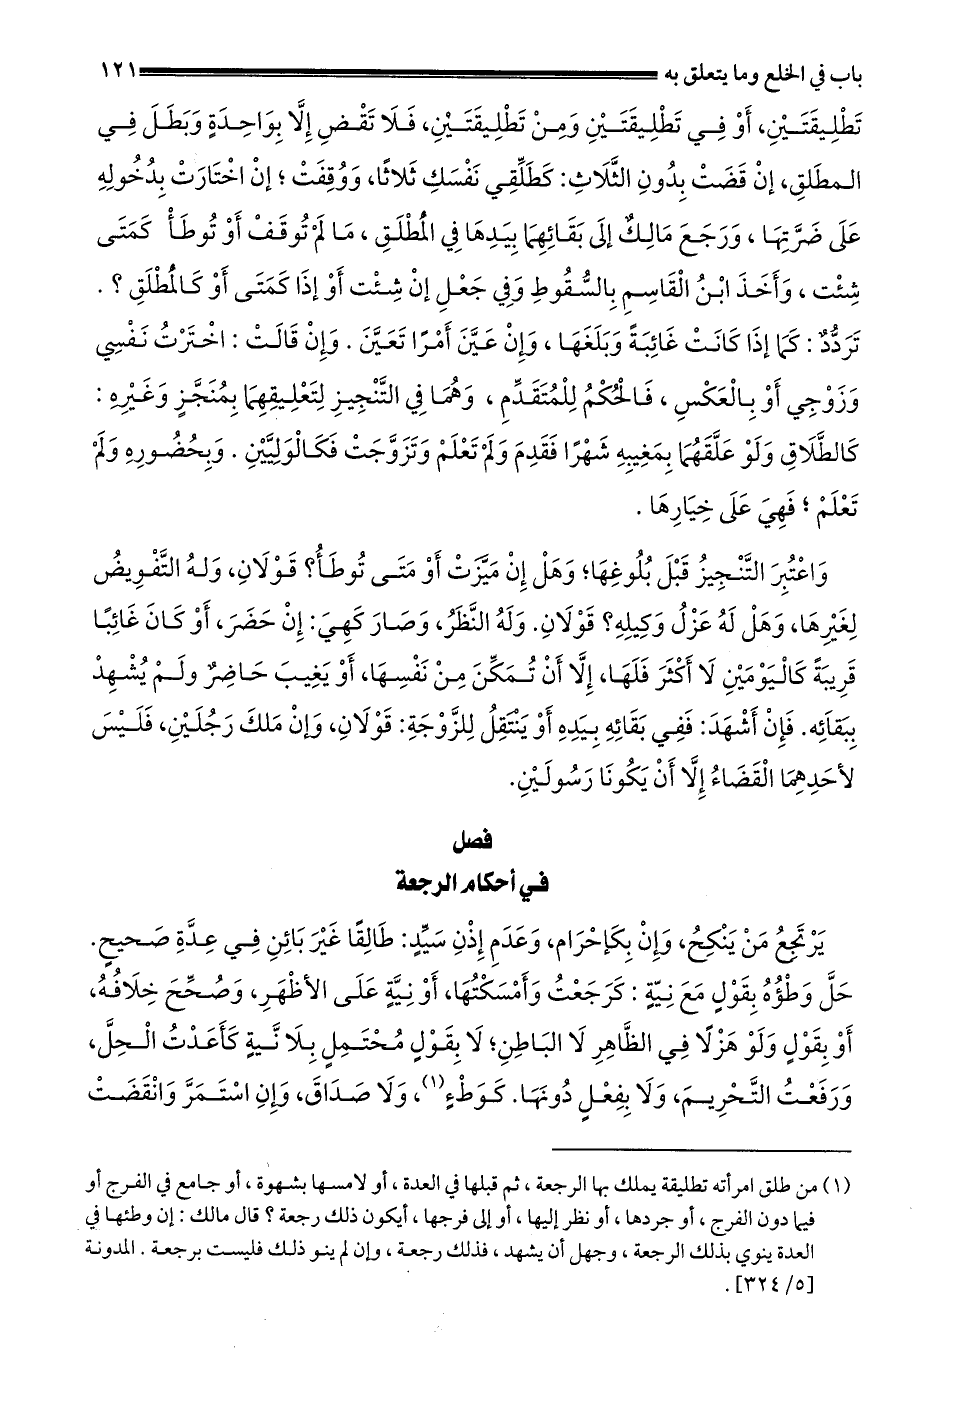 باب في الخلع وما يتعلق به ١٢١
تَطْلِيقَتَيْنِ، أَوْ فِي تَطْلِيقَتَيْنِ وَمِنْ تَطْلِيقَتَيْنِ، فَلَا تَقْضِ إِلَّا بِوَاحِدَةٍ وَبَطَلَ فِي
المطلَقِ، إنْ قَضَتْ بِدُونِ الثَّلَاثِ: كَطَلِّقِي نَفْسَكِ ثَلَاثًا، وَوُقِفَتْ ؛ إنْ اخْتَارَتْ بِدُخُولِهِ
عَلَى ضَرَّتِهَا ، وَرَجَعَ مَالِكٌ إلَى بَقَائِهِمَا بِيَدِهَا فِي المُطْلَقِ ، مَا لَمْ تُوقَفْ أَوْ تُوطَأْ كَمَتَى
شِئْت ، وَأَخَذَ ابْنُ الْقَاسِمِ بِالسُّقُوطِ وَفِي جَعْلِ إنْ شِئْت أَوْ إذَا كَمَتَى أَوْ كَالمُطْلَقِ ؟ .
تَرَدُّدٌ : كَمَا إذَا كَانَتْ غَائِبَةً وَبَلَغَهَا ، وَإِنْ عَيَّنَ أَمْرًا تَعَيَّنَ . وَإِنْ قَالَتْ : اخْتَرْتُ نَفْسِي
وَزَوْجِي أَوْ بِالْعَكْسِ ، فَالحُكْمُ لِلْمُتَقَدِّمِ ، وَهُمَا فِي التَّنْجِيزِ لِتَعْلِيقِهِمَا بِمُنَجَّزٍ وَغَيْرِهِ :
كَالطَّلَاقِ وَلَوْ عَلَّقَهُمَا بِمَغِيبِهِ شَهْرًا فَقَدِمَ وَلَمْ تَعْلَمْ وَتَزَوَّجَتْ فَكَالْوَلِيَّيْنِ . وَبِحُضُورِهِ وَلَمْ
تَعْلَمْ ؛ فَهِيَ عَلَى خِيَارِهَا .
وَاعْتُبِرَ التَّنْجِيزُ قَبْلَ بُلُوغِهَا؛ وَهَلْ إنْ مَيَّزَتْ أَوْ مَتَى تُوطَأُ؟ قَوْلَان، وَلهُ التَّفْوِيضُ
لِغَيْرِهَا، وَهَلْ لَهُ عَزْلُ وَكِيلِهِ؟ قَوْلَانِ. وَلَهُ النَّظَرُ، وَصَارَ كَهِيَ: إِنْ حَضَرَ، أَوْ كَانَ غَائِبًا
قَرِيبَةً كَالْيَوْمَيْنِ لَا أَكْثَرَ فَلَهَا، إِلَّا أَنْ تُمَكِّنَ مِنْ نَفْسِهَا، أَوْ يَغِيبَ حَاضِرٌ وَلَمْ يُشْهِدْ
بِبَقَائِه. فَإِنْ أَشْهَدَ: فَفِي بَقَائِهِ بِيَدِهِ أَوْ يَنْتَقِلُ لِلزَّوْجَةِ: قَوْلَانِ، وَإِنْ مَلكَ رَجُلَيْنِ، فَلَيْسَ
لأحَدِهِمَا الْقَضَاءُ إِلَّا أَنْ يَكُونَا رَسُولَيْنِ.
فصل
في أحكام الرجعة
يَرْتَجِعُ مَنْ يَنْكِحُ، وَإِنْ بِكَإحْرَام، وَعَدَمِ إِذْنِ سَيِّدٍ: طَالِقًا غَيْرَ بَائِنِ فِي عِدَّةِ صَحِيحٍ.
حَلَّ وَطْؤُهُ بِقَوْلٍ مَعَ نِيَّةٍ : كَرَجَعْتُ وَأَمْسَكْتُهَا، أَوْ نِيَّةٍ عَلَى الأظْهَرِ، وَصُحِّحَ خِلَافُهُ،
أَوْ بِقَوْلٍ وَلَوْ هَزْلًا فِي الظَّاهِرِ لَا الْبَاطِنِ؛ لَا بِقَوْلٍ مُحْتَمِلٍ بِلَا نِّيةٍ كَأَعَدْتُ الْحِلَّ،
وَرَفَعْتُ التَّحْرِيمَ، وَلَا بِفِعْلٍ دُونَهَا. كَوَطْءٍ(١)، وَلَا صَدَاقَ، وَإِنِ اسْتَمَرَّ وَانْقَضَتْ
(١) من طلق امرأته تطليقة يملك بها الرجعة ، ثم قبلها في العدة ، أو لامسها بشهوة ، أو جامع في الفرج أو
فيما دون الفرج ، أو جردها ، أو نظر إليها ، أو إلى فرجها ، أيكون ذلك رجعة ؟ قال مالك : إن وطئها في
العدة ينوي بذلك الرجعة ، وجهل أن يشهد ، فذلك رجعة ، وإن لم ينو ذلك فليست برجعة . المدونة
[٥/ ٣٢٤] .